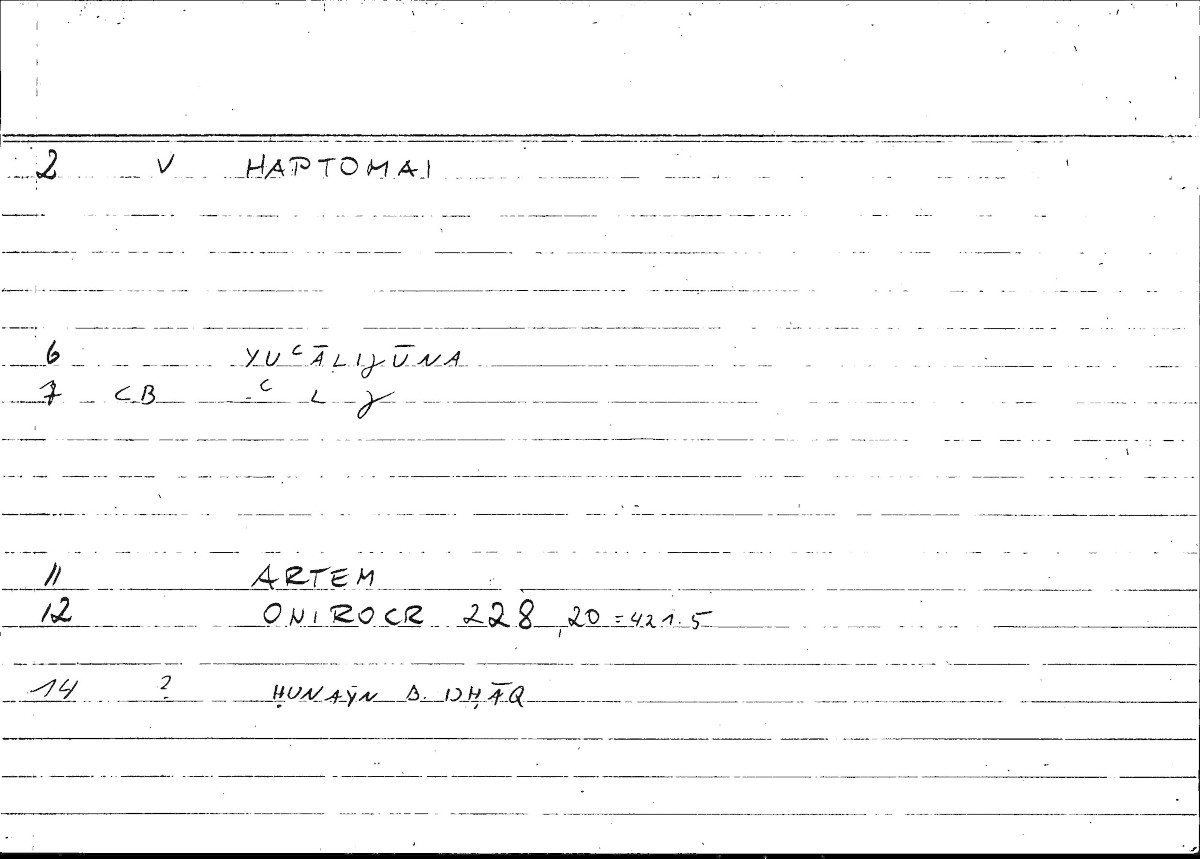 2 V HAPTOMAI
6 YUᶜĀLIǧŪNA
7 CB ᶜ L ǧ
11 ARTEM
12 ONIROCR 228,20 = 421.5
14 ? ḤUNAYN B. ISḤĀQ